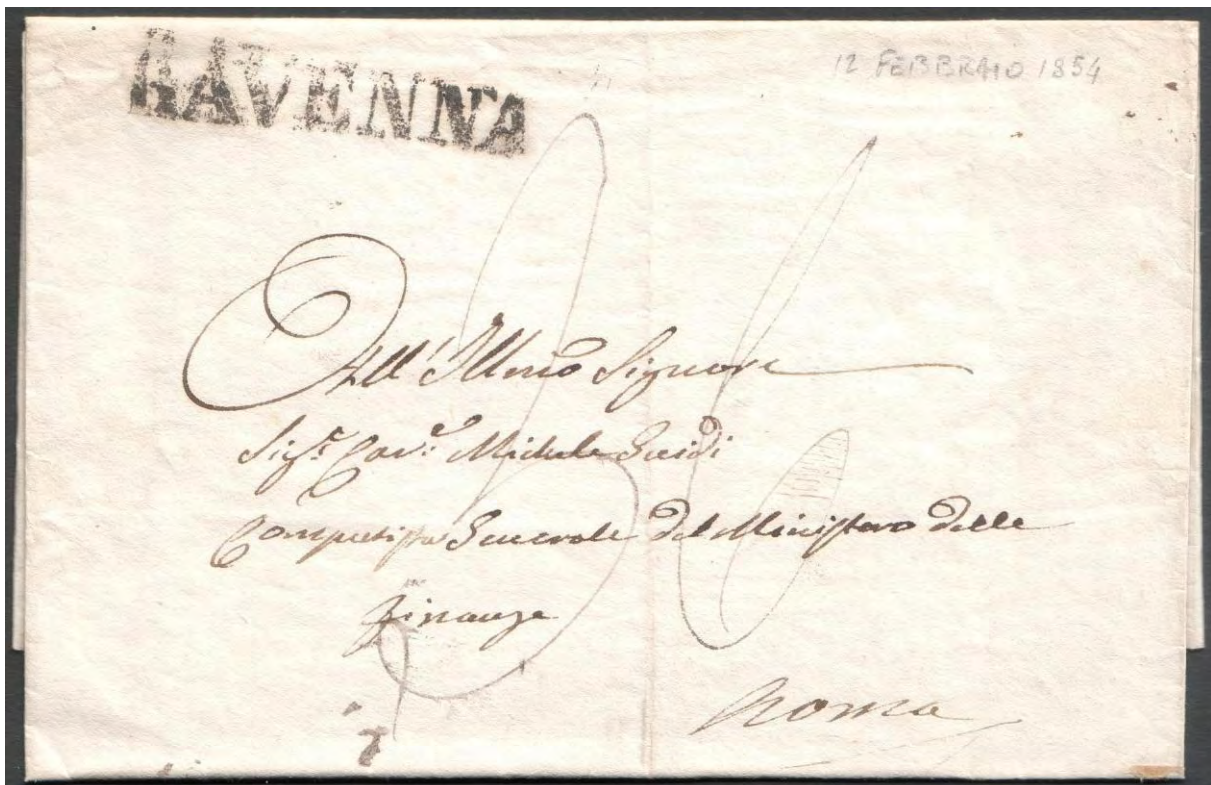 RAVENNA
12 FEBBRAIO 1854
36
All' Illmo Signore
Sigr. Cav.e Michele Guidi
Computista Generale del Ministero delle
Finanze
Roma